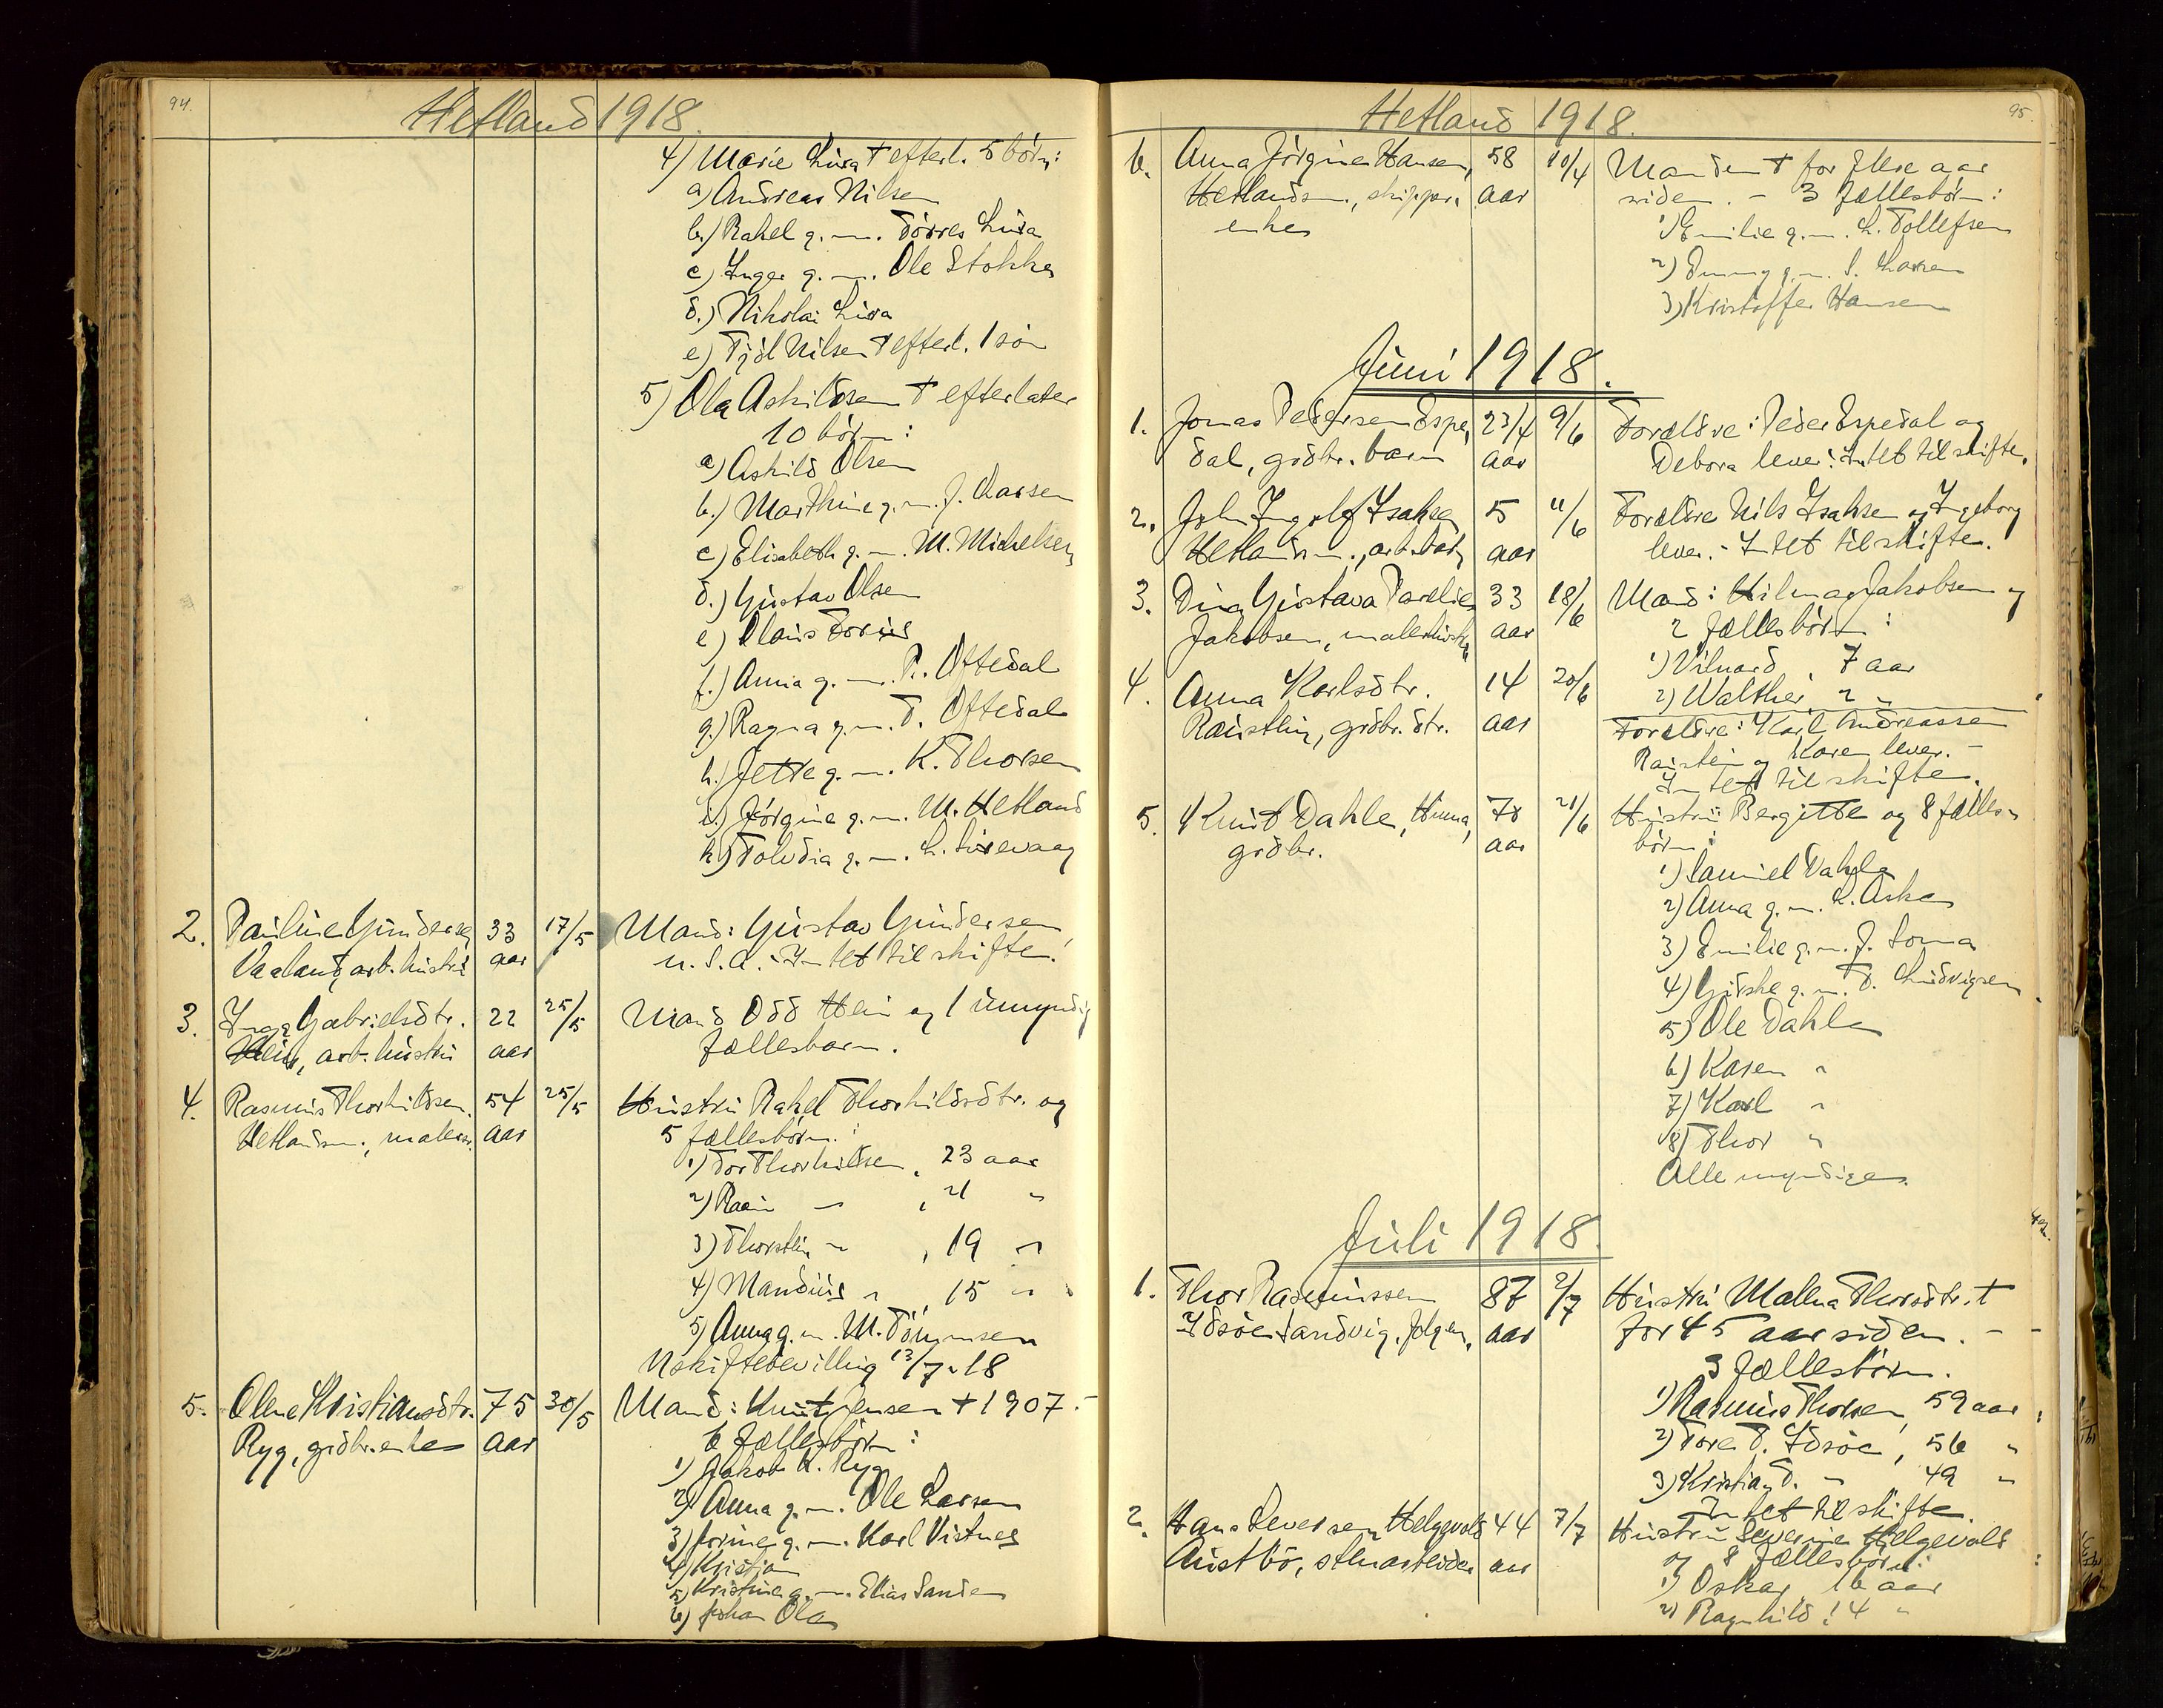 94.
Hetland 1918.
4) Marie Lura † efterl. 5 börn:
a) Andreas Nilsen
b.) Rakel g. m. Törres Lura
c) Inger g. m. Ole Stokke
d.) Nikolai Lura
e) Tjöl Nilsen † efterl. 1 sön
5) Ola Askildsen † efterlater
10 börn:
a) Askild Olsen
b.) Marthine g. m. J. Larsen
c) Elisabeth g. m. M. Mickelsen
d.) Gustav Olsen
e) Claus Forus
f.) Anna g. m. R. Oftedal
g.) Ragna g. m. T. Oftedal
h.) Jette g. m. K. Thorsen
i.) Jörgine g. m. M. Hetland
k) Tolvdia g. m. L. Sirevaag
2. Pauline Gundersen 33 17/5 Mand: Gustav Gundersen,
Vaaland, arb. hustru aar U. S. A. - Intet til skifte.
3. Inga Gabrielsdtr. 22 25/5 Mand Odd Hein og 1 umyndig
Hein, arb. hustru aar fællesbarn.
4. Rasmus Thorkildsen 54 25/5 Hustru Rakel Thorkildsdtr. og
Hetlandsm., maler aar 5 fællesbörn:
1) Tor Thorkildsen, 23 aar
2) - , 21 "
3) Thorstein " , 19 "
4) Mandius " , 15 "
5) Anna g. m. M. Tönnesen
Uskiftebevilling 13/7-18
5. Olene Kristiansdtr. 75 30/5 Mand: Knut Jensen † 1907.-
Ryg, grdbr. enke aar 6 fællesbörn:
1) Jakob K. Ryg
2) Anna g. m. Ole Larsen
3) Jorine g. m. Karl Vistnes
4) Kristian
5) Kristine g. m. Elias Sande
6) Johan Ola
95.
Hetland 1918.
6. Anna Jörgine Hansen, 58 10/4 Manden † for flere aar
Hetlandsm., skippers aar siden. - 3 fællesbörn:
enke
1) Emilie g. m. L. Tollefsen
2) Emmy g. m. S. Larsen
3) Kristoffer Hansen
Juni 1918.
1. Jonas Pedersen Espe- 23/4 9/6 Forældre: Peder Espedal og
dal, grdbr. barn aar Debora lever. Intet til skifte.
2. John Ingolf Isaksen 5 11/6 Forældre Nils Isaksen og Ingeborg
Hetlandsm., arb. barn aar lever. - Intet til skifte.
3. Dina Gustava 33 18/6 Mand: Hilmar Jakobsen og
Jakobsen, malerhustru aar 2 fællesbörn:
1) Vilnard, 7 aar
2) Walther, 2 "
4. Anna Karlsdtr. 14 20/6
Raustein, grdbr. dtr. aar Forældre: Karl Andreassen
Raustein og Karen lever. -
Intet til skifte.
5. Knut Dahle, Hinna, 78 21/6 Hustru Bergitte og 8 fælles-
grdbr. aar börn:
1) Samuel Dahle
2) Anna g. m. L. Aske
3) Emilie g. m. J. Soma
4) Gurske g. m. T. Ludvigsen
5) Ole Dahle
6) Karen "
7) Karl "
8) Thor "
Alle myndige.
Juli 1918.
1. Thor Rasmussen 87 2/7 Hustru Malena Thorsdtr. †
Idsöe Sandvig, aar for 45 aar siden. - -
3 fællesbörn.
1) Rasmus Thorsen, 59 aar
2) Tore T. Idsöe, 56 "
3) Kristian T. " 49 "
Intet til skifte.
2. Hans Seversen Helgevold 44 7/7 Hustru Severine Helgevold
Austbö, aar og 8 fællesbörn:
1) Oskar 16 aar
2) Ragnhild 14 "